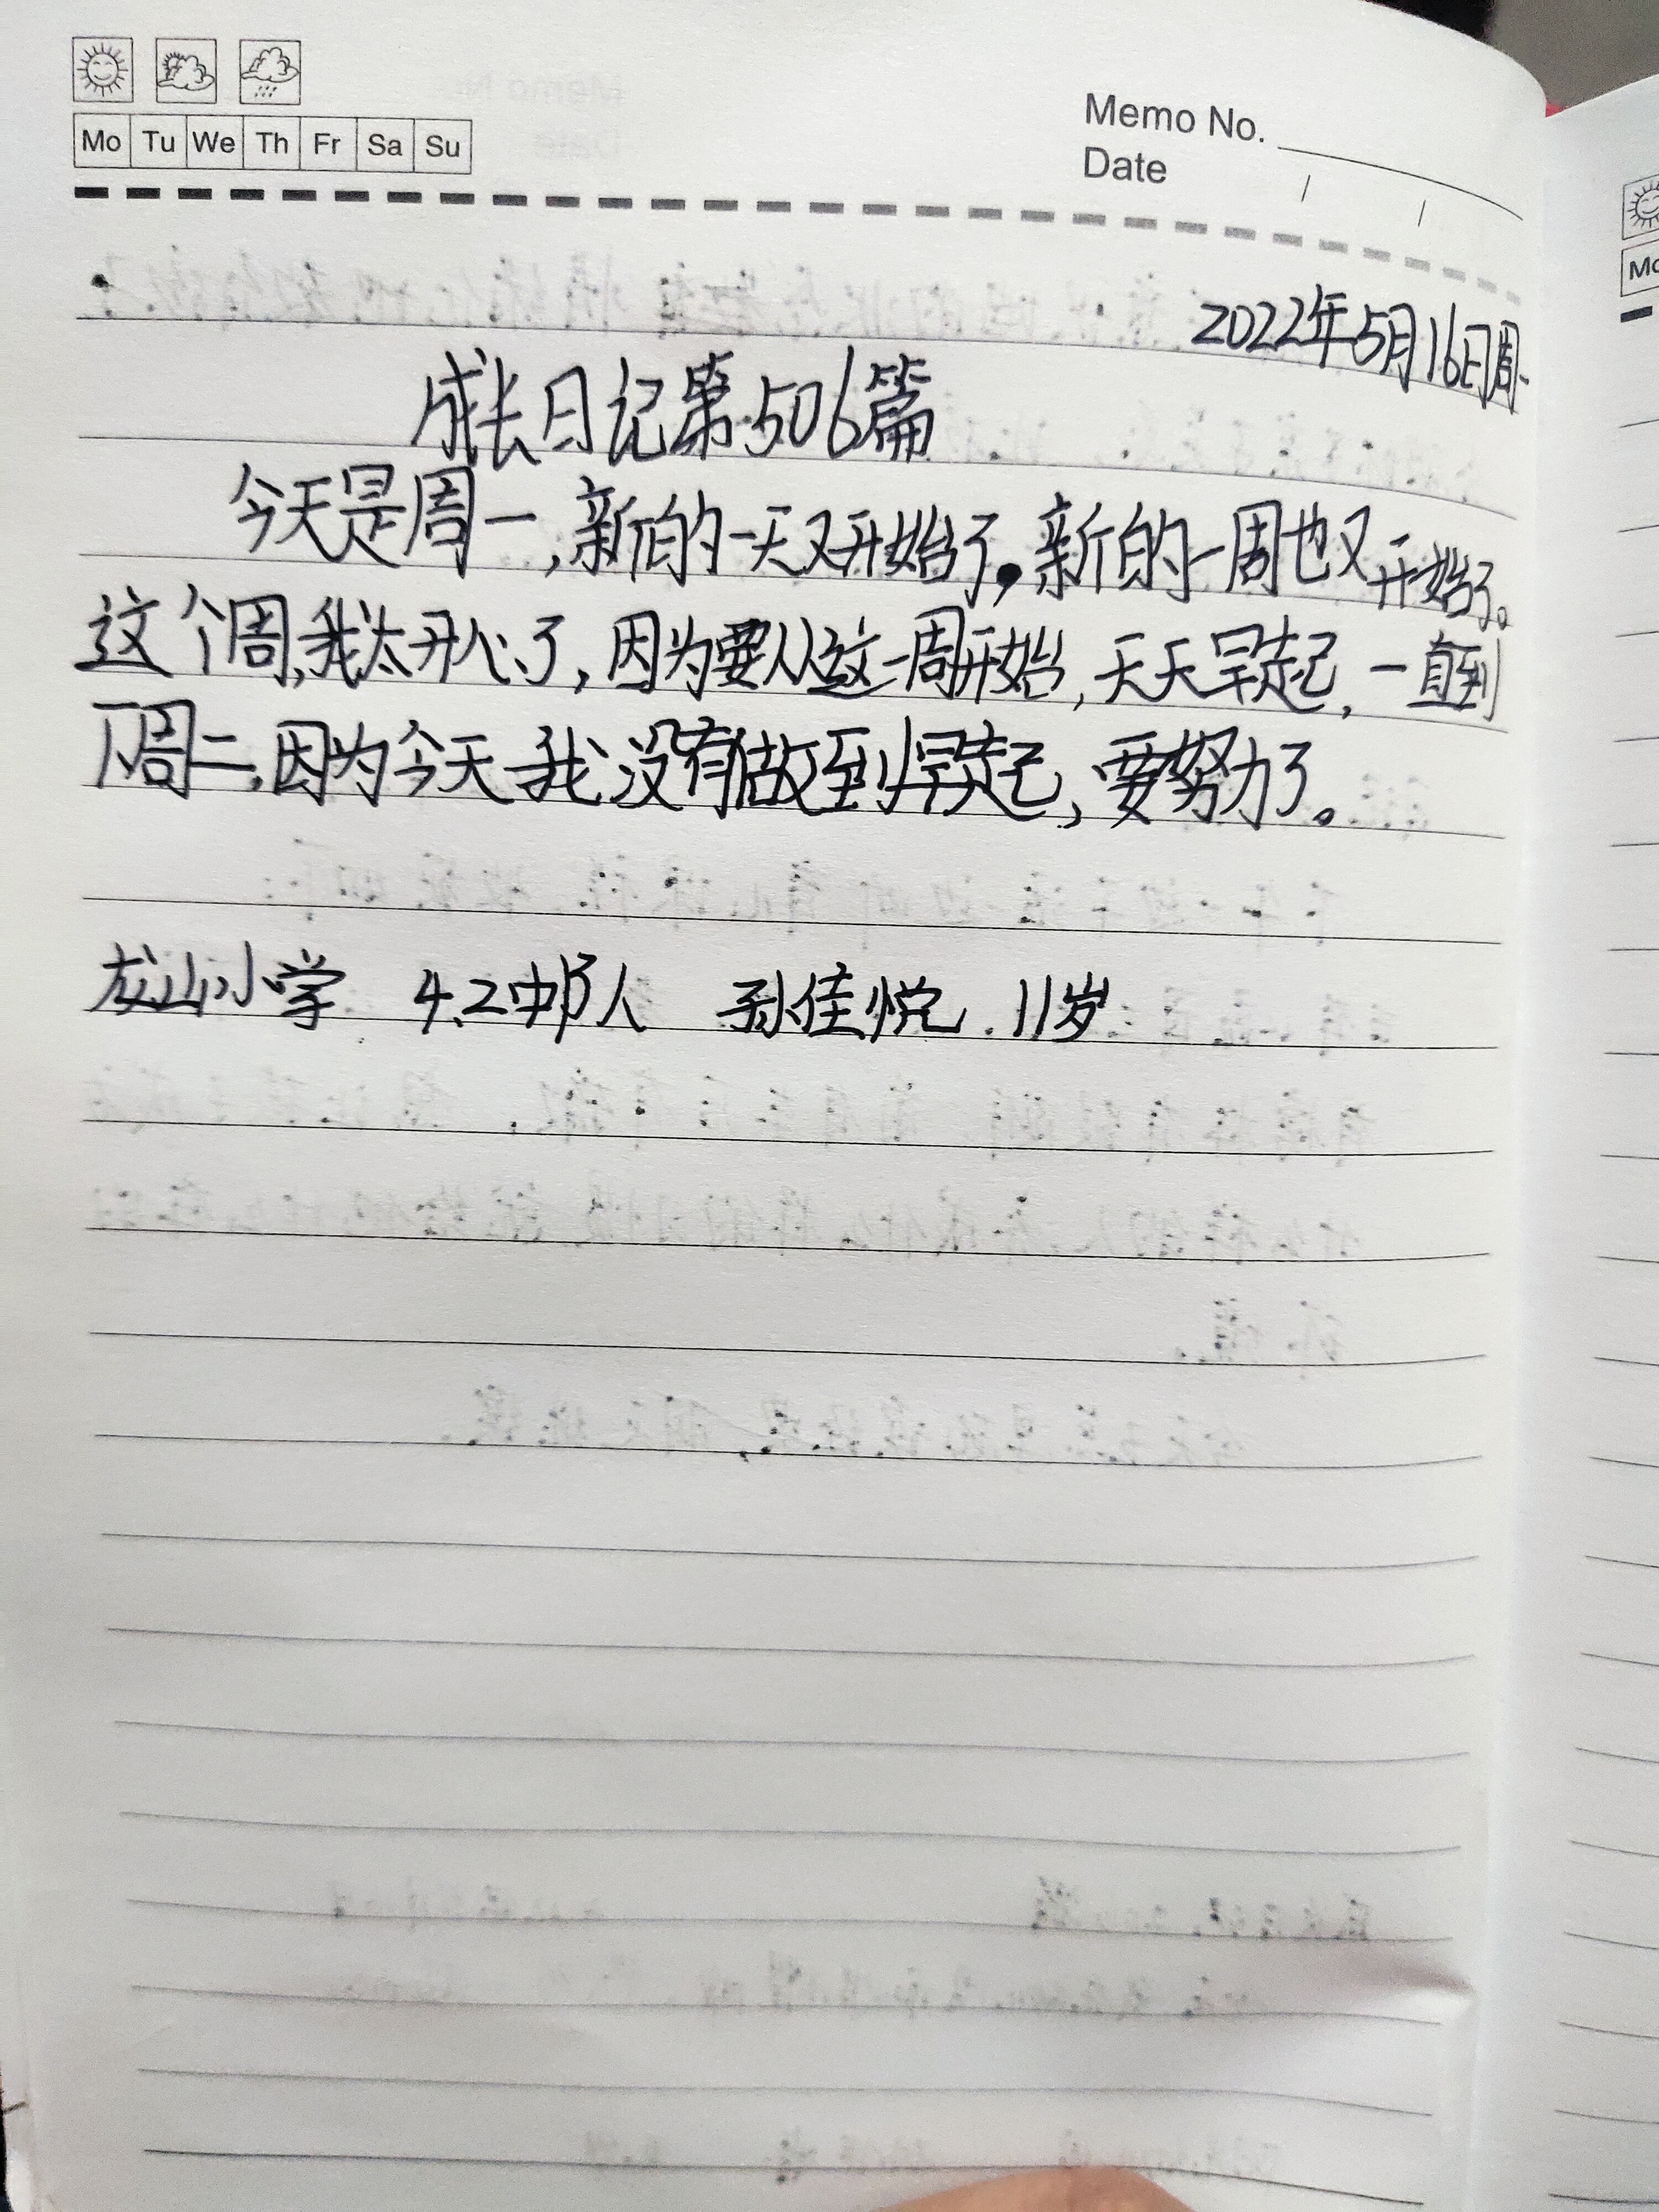 Mo Tu We Th Fr Sa Su
Memo No.
Date
2022年5月16日周一
成长日记第506篇
今天是周一,新的一天又开始了,新的一周也又开始了。
这个周,我太开心了,因为要从这一周开始,天天早起,一直到
下周二,因为今天我没有做到早起,要努力了。
龙山小学 4.2中队人 孙佳悦 11岁
Mo